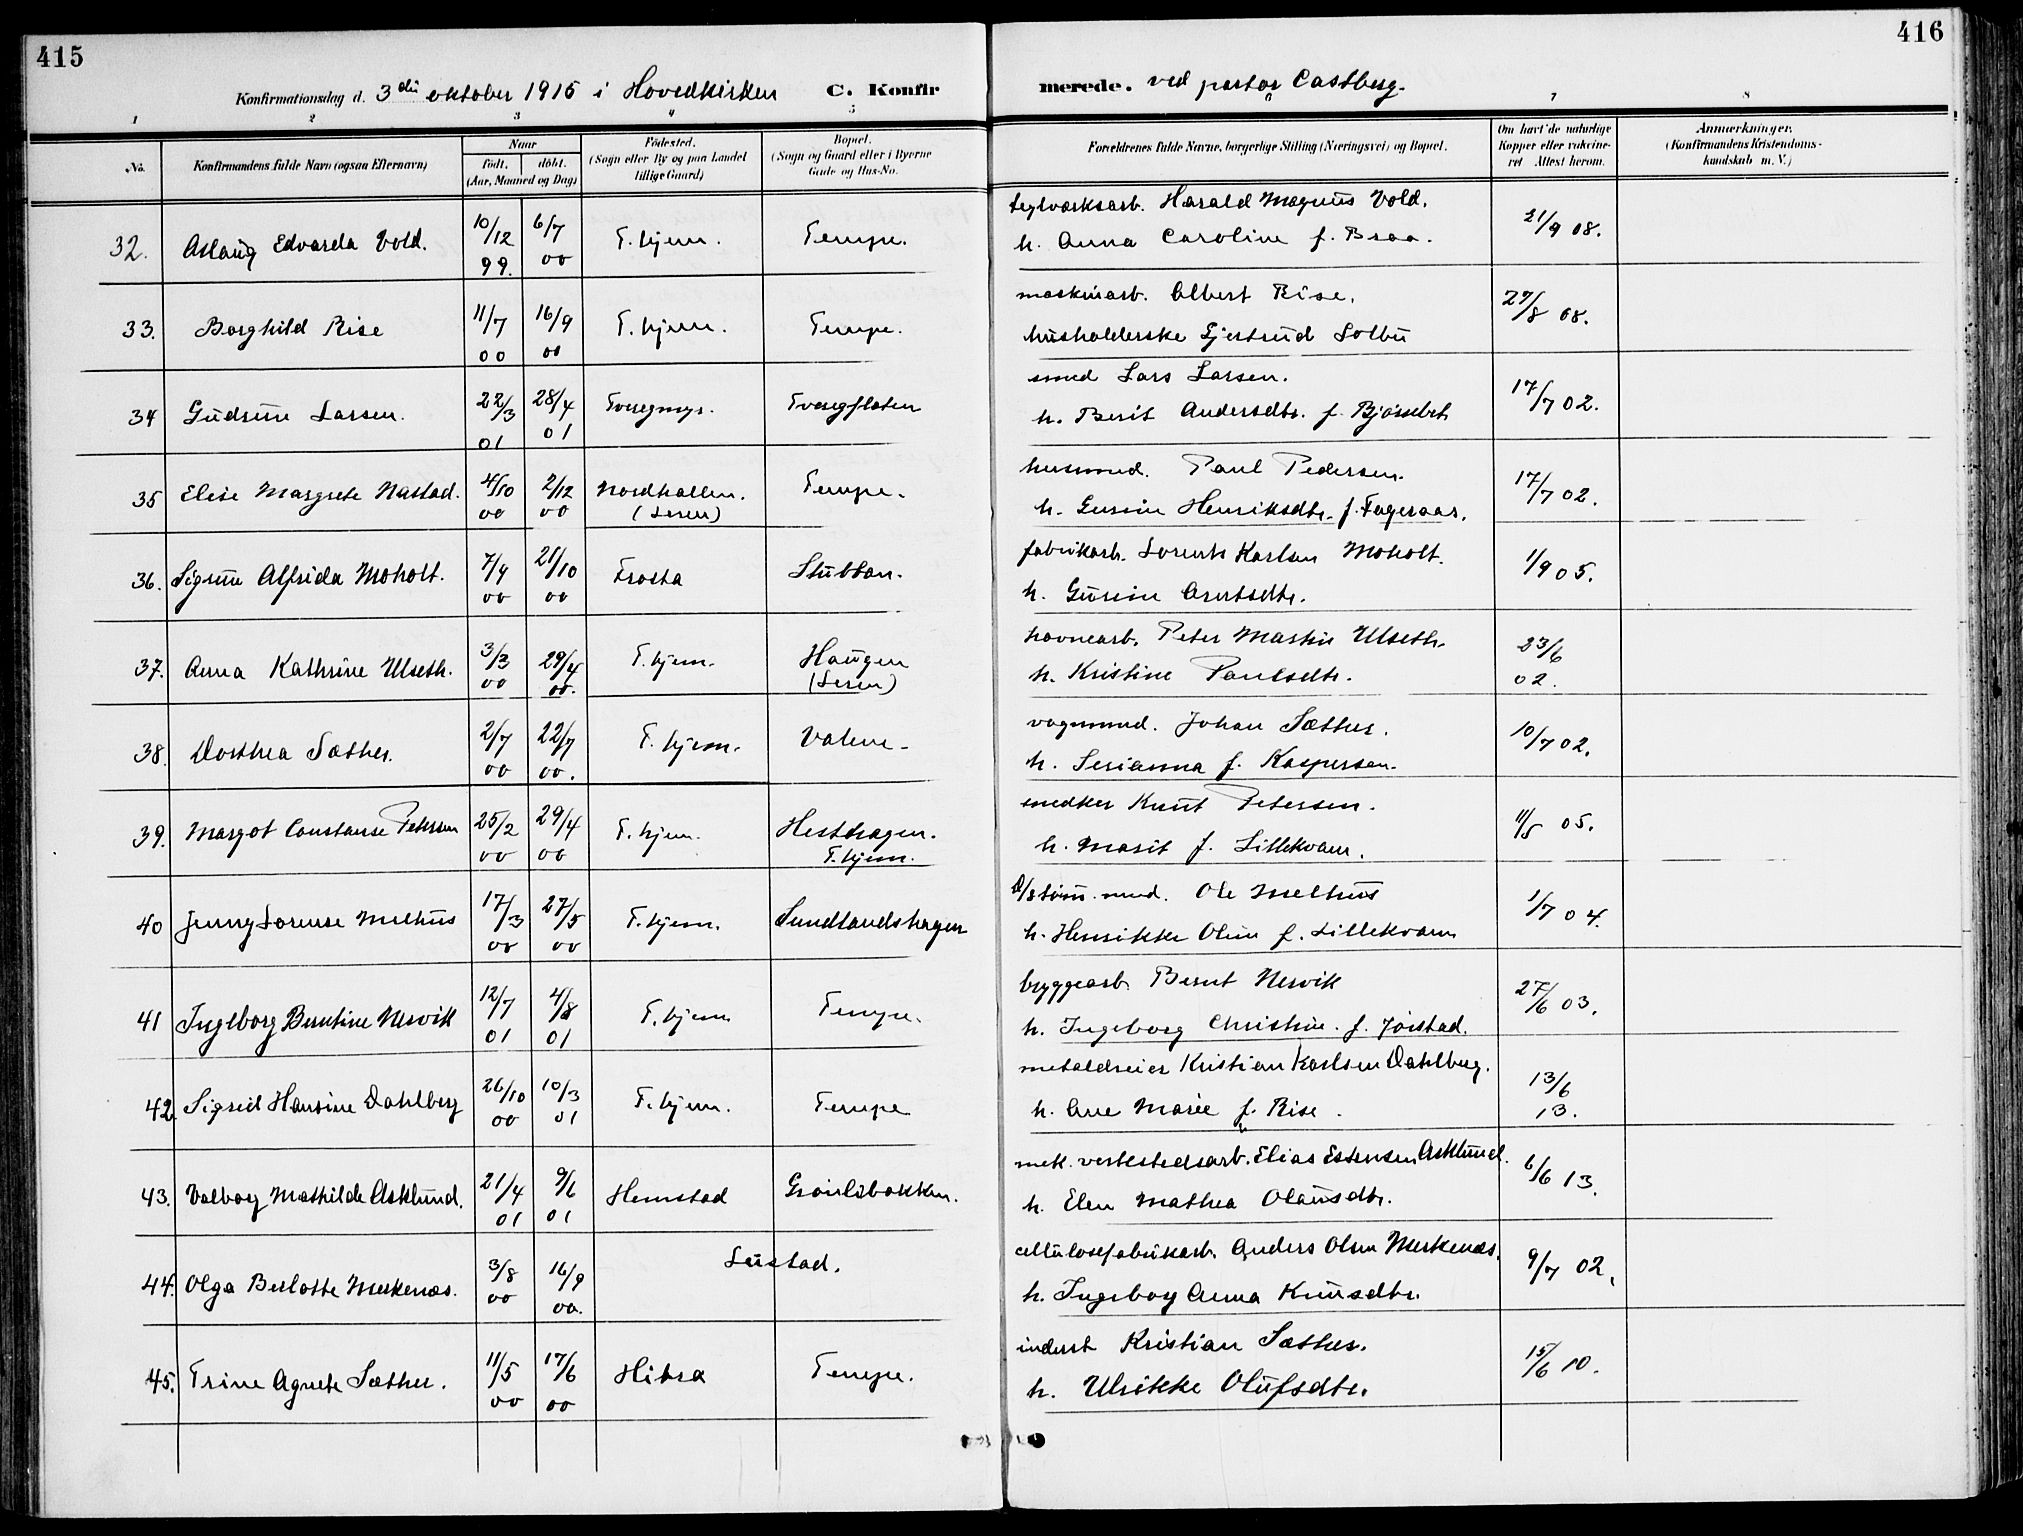 415
416
Konfirmationsdag d. 3die oktober 1915 i Hovedkirken C. Konfirmerede. ved pastor Castberg.
1 2 3 4 5 7 8
No.
Konfirmandens fulde Navn (ogsaa Efternavn)
Naar
født. døbt.
(Aar, Maaned og Dag)
Fødested.
(Sogn eller By og paa Landet
tillige Gaard)
Bopæl.
(Sogn og Gaard eller i Byerne
Gade og Hus-No.
Forældrenes fulde Navne, borgerlige Stilling (Næringsvei) og Bopæl.
Om havt de naturlige
Kopper eller vakcine-
ret Attest herom.
Anmærkninger.
(Konfirmandens Kristendoms-
kundskab m. V.)
32. Aslaug Edvarda Vold. 10/12 99. 6/7 00 T. hjem. Tempe. teglværksarb. Harald Magnus Vold. 21/9 08.
h. Anna Caroline f. Braa.
33. Borghild Rise 11/7 00 16/9 00 T. hjem. Tempe. maskinarb. Albert Rise. 27/8 08.
husholderske Gjertrud Solbu
34 Gudrun Larsen. 22/3 01 28/4 01 Tveregmyr. Tveregflaten smed Lars Larsen. 17/7 02.
h. Berit Andersdtr. f.
35 Elise Margrete Nastad. 4/10 00 2/12 00 Nordhallen. (Leren) Tempe. husmand. Paul Pedersen. 17/7 02.
h. Gurine Henriksdtr. f. Fageraas.
36. Sigrun Alfrida Moholt. 7/9 00 21/10 00 Frosta Stubban. fabrikarb. Lorents Karlsen Moholt. 1/9 05.
h. Gurine Arntsdtr.
37. Anna Kathrine Ulseth. 3/3 00 29/4 00. T. hjem. Haugen (Leren) havnearb. Peter Martin Ulseth. 23/6 02.
h. Kristine Paulsdtr.
38. Dorthea Sæther. 2/7 00 22/7 00. T. hjem. Valene. vognmand. Johan Sæther. 10/7 02.
h. Serianna f. Kaspersen.
39. Margot Constanse Petersen 25/2 00 29/4 00 T. hjem. Hesthagen. T. hjem. snedker Knut Petersen. 11/5 05.
h. Marit f. Lillekvam.
40 Jenny Lorense Melhus 17/3 00 27/5 00 T. hjem. Sundlandshagen mand. Ole Melhus 1/7 04.
h. Henrikke Oline f. Lillekvam
41 Ingeborg Berntine Nervik 12/7 01 4/8 01 T. hjem Tempe. bryggearb. Bernt Nervik 27/6 03.
h. Ingeborg Christine. f. Jørstad.
42. Sigrid Hansine Dahlberg 26/10 00 10/3 01 T. hjem. Tempe metaldreier Kristian Karlsen Dahlberg. 13/6 13.
h. Ane Marie f. Rise.
43. Valborg Mathilde Asklund. 21/4 01 9/6 01 Hemstad Grønlibakken. mek. verkstedsarb. Elias Estensen Asklund. 6/6 13.
h. Elen Mathea Olausdtr.
44. Olga Berlotte Merkenæs. 3/8 00 16/9 00. Lustad. cellulosefabrikarb. Anders Olsen Merkenæs. 9/7 02.
h. Ingeborg Anna Knusdtr.
45. Trine Agnete Sæther. 11/5 00 17/6 00 Hitra Tempe. inderst Kristian Sæther. 15/6 10.
h. Ulrikke Olufsdtr.